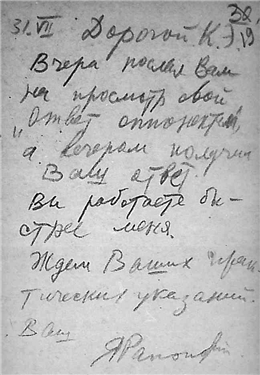 31.VII
Дорогой К.Э.
Вчера послал Вам
на просмотр свой
"Ответ оппонентам",
а вечером получил
Ваш ответ.
Вы работаете бы-
стрее меня.
Ждем Ваших прак-
тических указаний.
Ваш